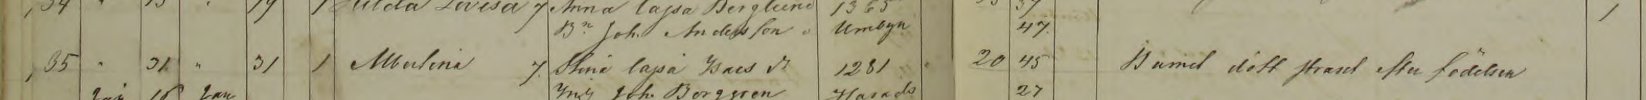 134 " 15 " 19 1 Hulda Lovisa 7. Anna Cajsa Berglund 1365 37 1
Bn Joh. Andersson Umbyn 47.
135 " 31 " 31 1 Albertina 7. Stina Cajsa Isacs Dr 1281 20 45 Barnet dött strax efter födelsen
16 Jan Joh. Berggren Harads 27